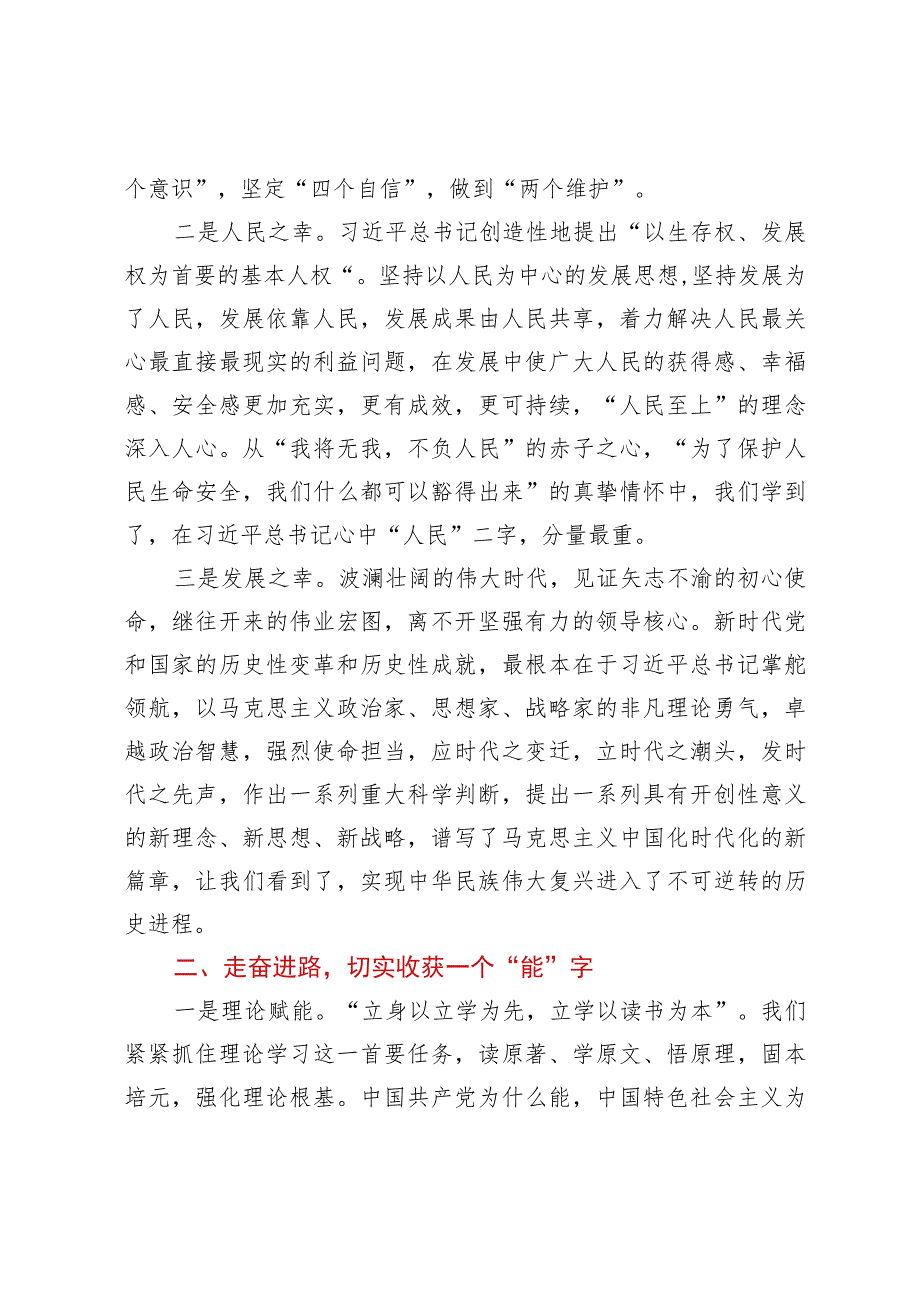 个意识”，坚定“四个自信”，做到“两个维护”。
二是人民之幸。习近平总书记创造性地提出“以生存权、发展
权为首要的基本人权“。坚持以人民为中心的发展思想,坚持发展为
了人民，发展依靠人民，发展成果由人民共享，着力解决人民最关
心最直接最现实的利益问题，在发展中使广大人民的获得感、幸福
感、安全感更加充实，更有成效，更可持续，“人民至上”的理念
深入人心。从“我将无我，不负人民”的赤子之心，“为了保护人
民生命安全，我们什么都可以豁得出来”的真挚情怀中，我们学到
了，在习近平总书记心中“人民”二字，分量最重。
三是发展之幸。波澜壮阔的伟大时代，见证矢志不渝的初心使
命，继往开来的伟业宏图，离不开坚强有力的领导核心。新时代党
和国家的历史性变革和历史性成就，最根本在于习近平总书记掌舵
领航，以马克思主义政治家、思想家、战略家的非凡理论勇气，卓
越政治智慧，强烈使命担当，应时代之变迁，立时代之潮头，发时
代之先声，作出一系列重大科学判断，提出一系列具有开创性意义
的新理念、新思想、新战略，谱写了马克思主义中国化时代化的新
篇章，让我们看到了，实现中华民族伟大复兴进入了不可逆转的历
史进程。
二、走奋进路，切实收获一个“能”字
一是理论赋能。“立身以立学为先，立学以读书为本”。我们
紧紧抓住理论学习这一首要任务，读原著、学原文、悟原理，固本
培元，强化理论根基。中国共产党为什么能，中国特色社会主义为